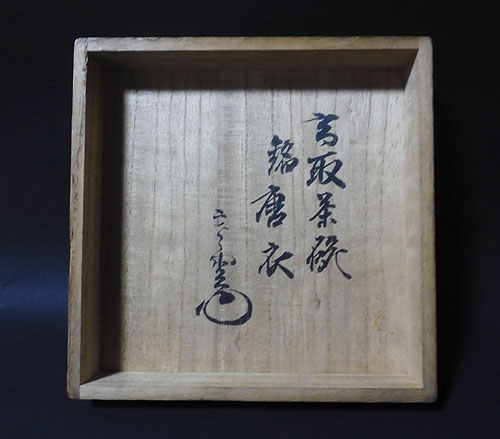 高取茶碗
銘唐衣